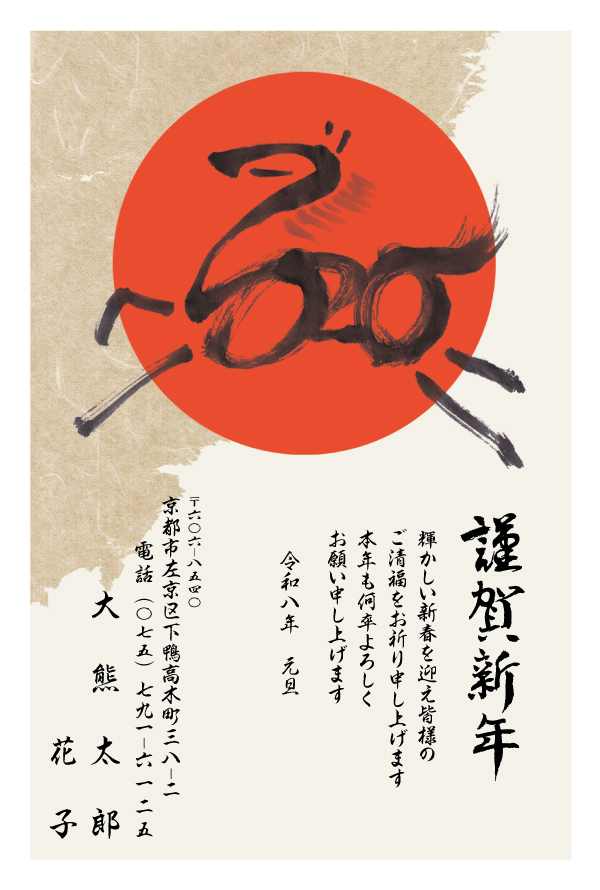 謹賀新年
輝かしい新春を迎え皆様の
ご清福をお祈り申し上げます
本年も何卒よろしく
お願い申し上げます
令和八年 元旦
〒六〇六ー八五四〇
京都市左京区下鴨高木町三八ー二
電話(〇七五)七九一ー六一二五
大熊太郎
花子